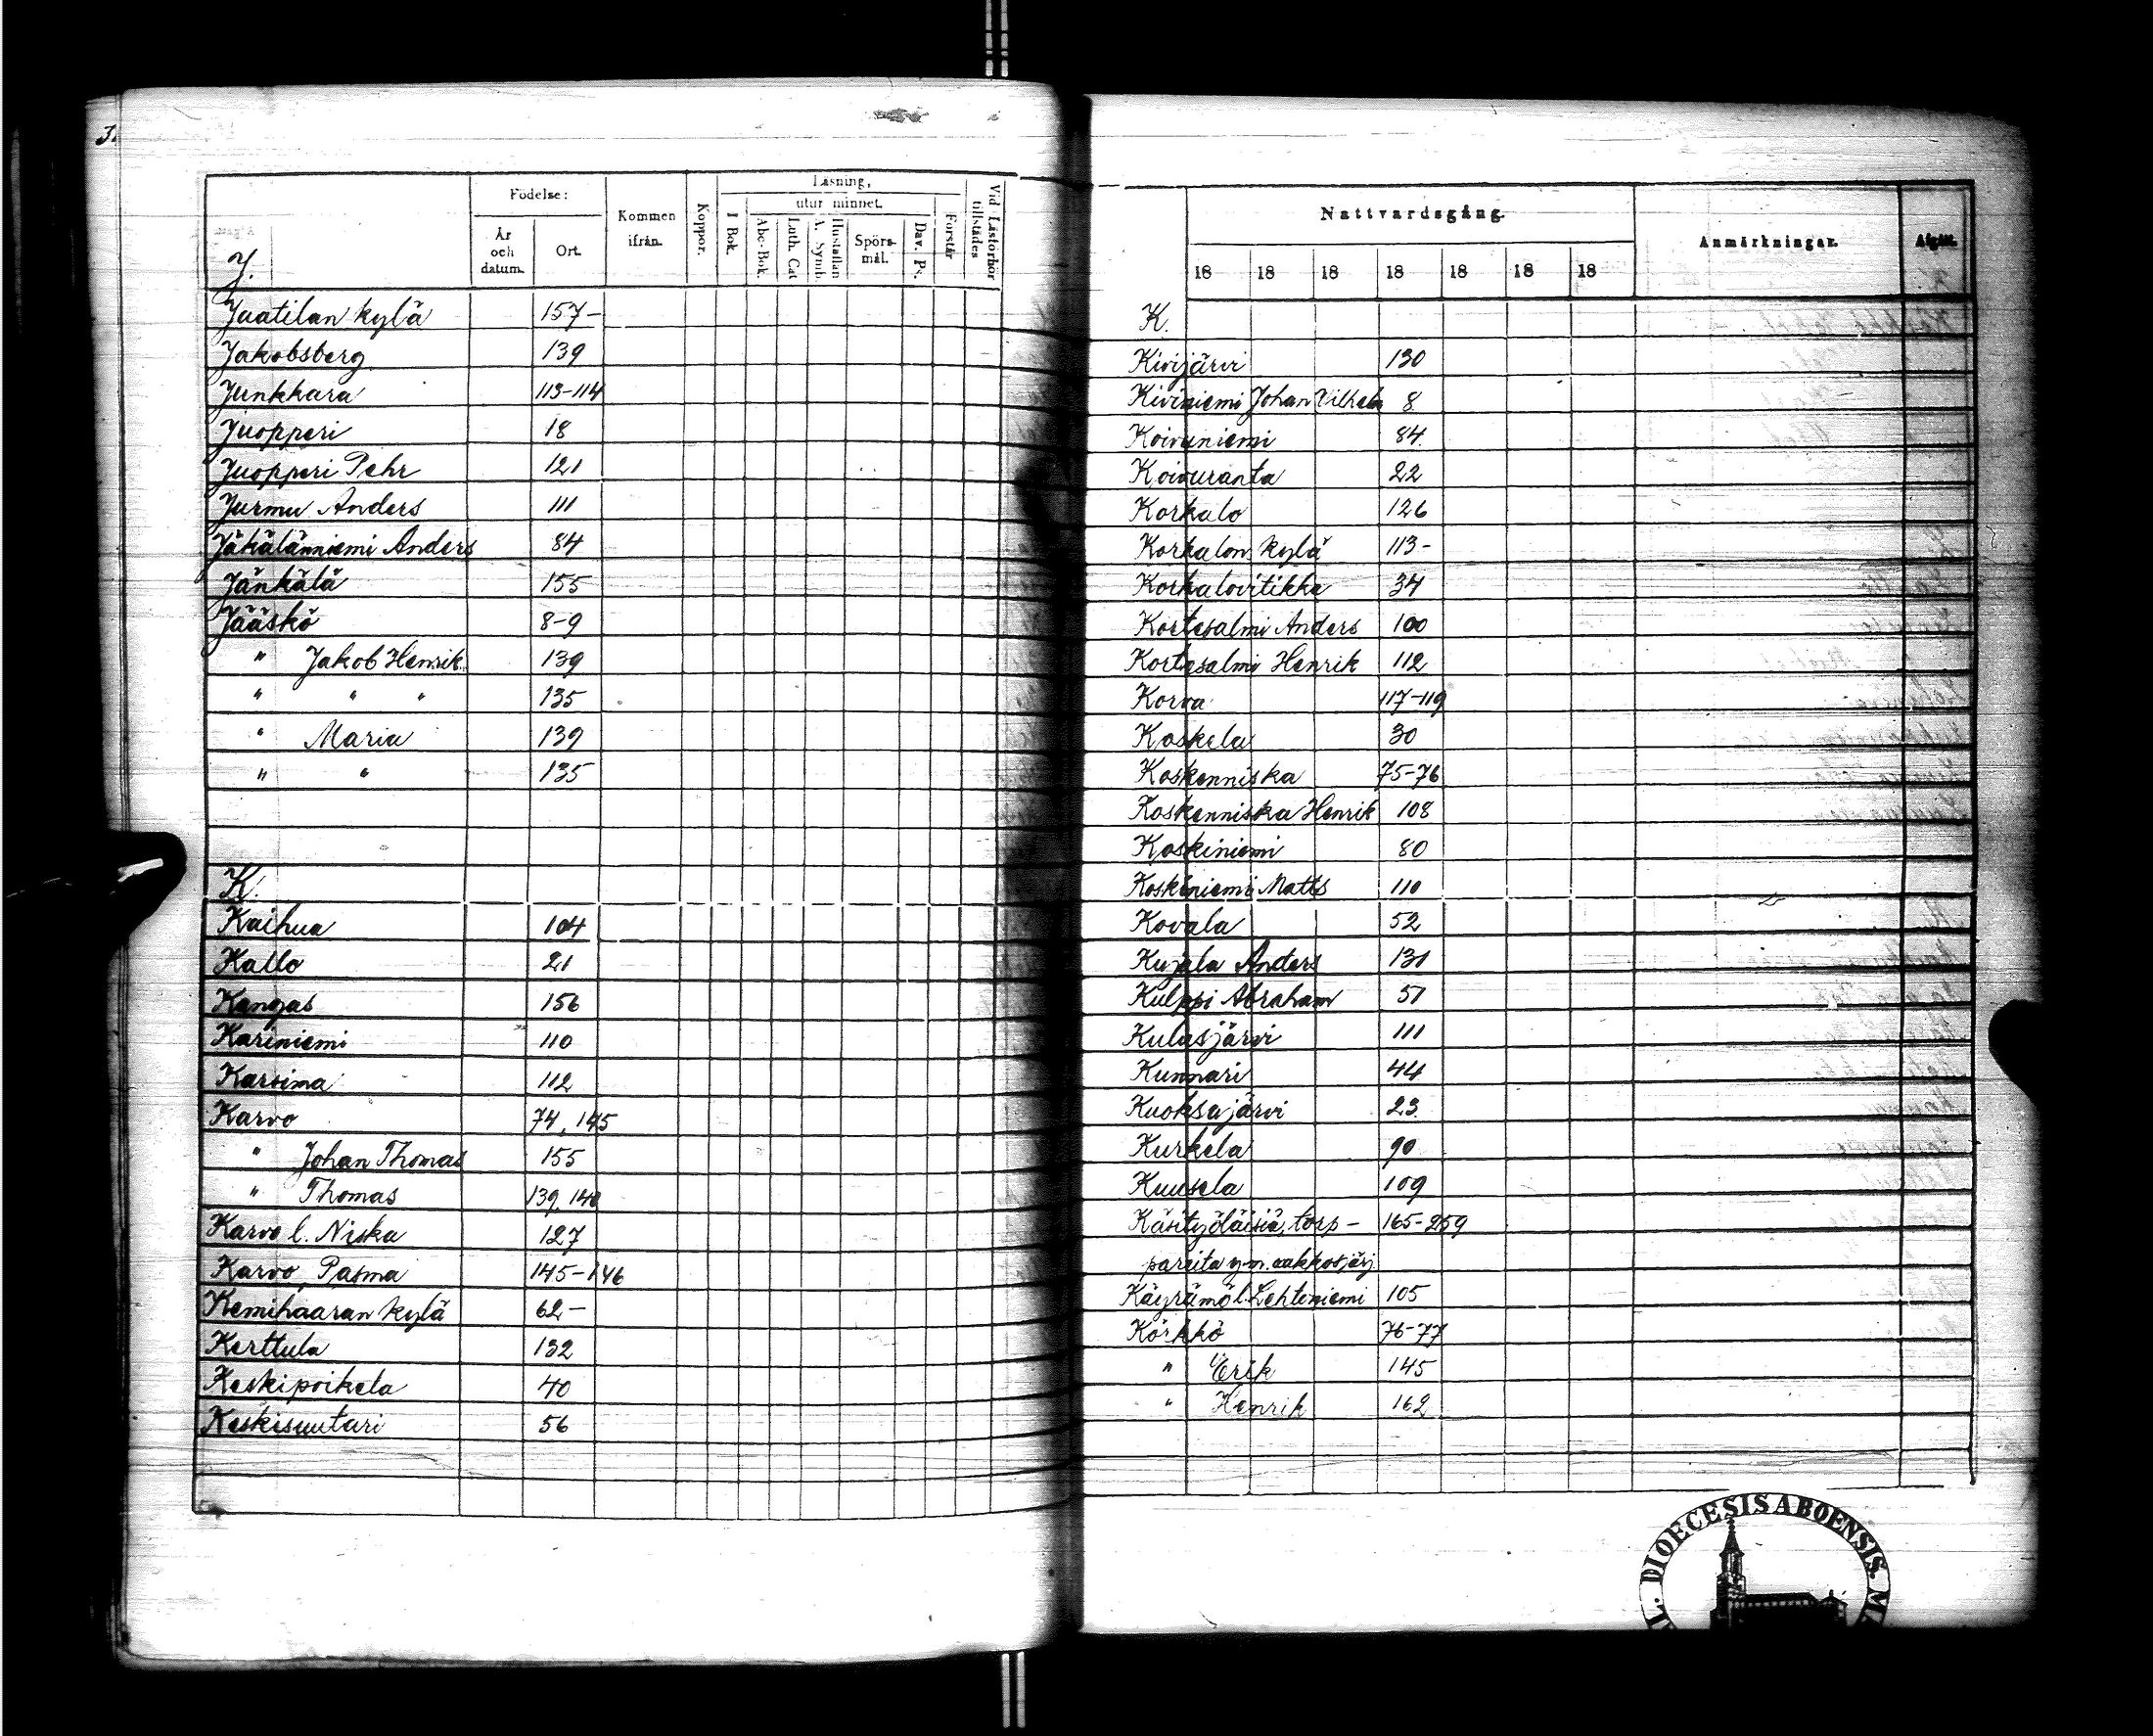 3.
Födelse:
År och datum.
Ort.
Kommen ifrån.
Koppor.
Läsning,
I Bok.
utur minnet.
Abc-Bok.
Luth. Cat
Hustaflan A. Symb.
Spörs-mål.
Dav. Ps.
Förstår
Vid Läsförhör tillstädes
J.
Jaatilan kylä 157-
Jakobsberg 139
Junkkara 113-114
Juopperi 18
Juopperi Pehr 121
Jurmu Anders 111
Jäkälänniemi Anders 84
Jänkälä 155
Jääskö 8-9
" Jakob Henrik 139
" " " 135
" Maria 139
" " 135
K.
Kaihua 104
Kallo 21
Kangas 156
Kariniemi 110
Karsima 112
Karvo 74, 145
" Johan Thomas 155
" Thomas 139, 140
Karvo l. Niska 127
Karvo, Pasma 145-146
Kemihaaran kylä 62-
Kerttula 132
Keskipoikela 40
Keskisuutari 56
Nattvardsgång.
18 18 18 18 18 18 18
Anmärkningar.
Afgått.
K.
Kivijärvi 130
Kiviniemi Johan Vilhelm 8
Koivuniemi 84
Koivuranta 22
Korkalo 126
Korkalon kylä 113-
Korkalovitikka 34
Kortesalmi Anders 100
Kortesalmi Henrik 112
Korva 117-119
Koskela 30
Koskenniska 75-76
Koskenniska Henrik 108
Koskiniemi 80
Koskiniemi Matts 110
Kovala 52
Kujala Anders 131
Kulppi Abraham 51
Kulusjärvi 111
Kunnari 44
Kuoksajärvi 23
Kurkela 90
Kuusela 109
Käsityöläisiä, torp- 165-259
pareita y.m. aakkosjärj.
Käyrämö l. Lehtiniemi 105
Körkkö 76-77
" Erik 145
" Henrik 162
DIOECESIS ABOENSIS.